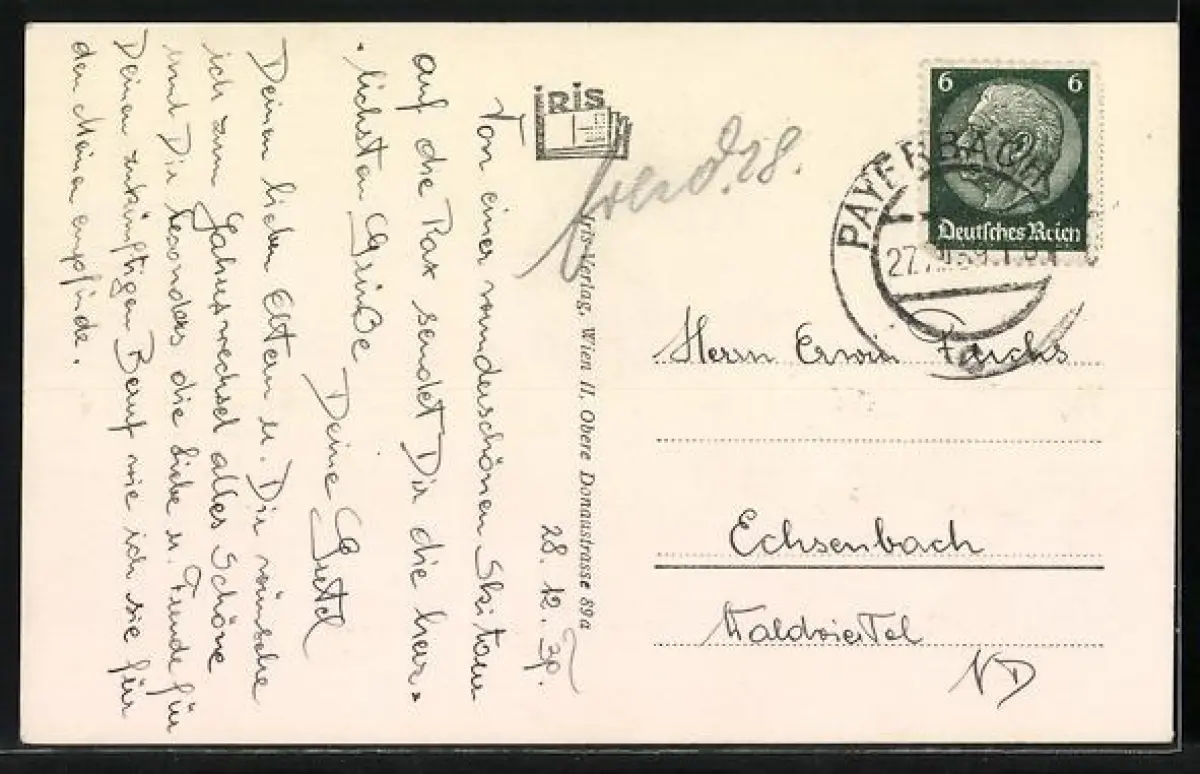 28. 12. 39.
Von einer wunderschönen Skitour
auf die Rax sendet Dir die herz-
lichsten Grüße
Deine Gretl
Deinen lieben Eltern u. Dir wünsche
ich zum Jahreswechsel alles Schöne
und Dir besonders die Liebe u. Freude für
Deinen zukünftigen Beruf wie ich sie für
den Meinen empfinde.
IRIS
Iris-Verlag, Wien II. Obere Donaustrasse 89a
28.
6 6
Deutsches Reich
PAYERBACH
27.
Herrn Erwin
Echsenbach
Waldviertel
ND